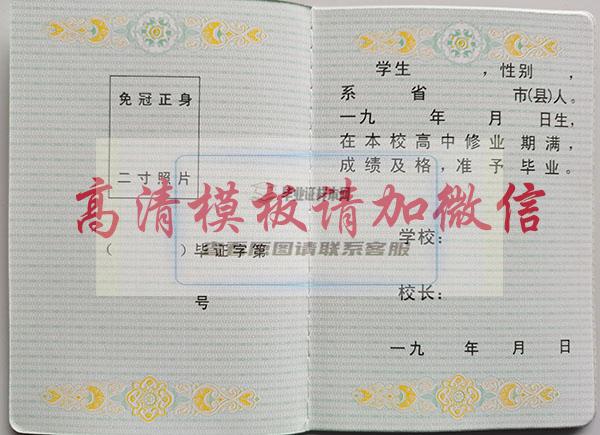 免冠正身
二寸照片
( ) 毕证字第
号
学生 ,性别 ,
系 省 市(县)人。
一九 年 月 日生,
在本校高中修业 期满,
成绩及格,准予 毕业。
学校:
校长:
一九 年 月 日
高清模板请加微信
图请联系客服